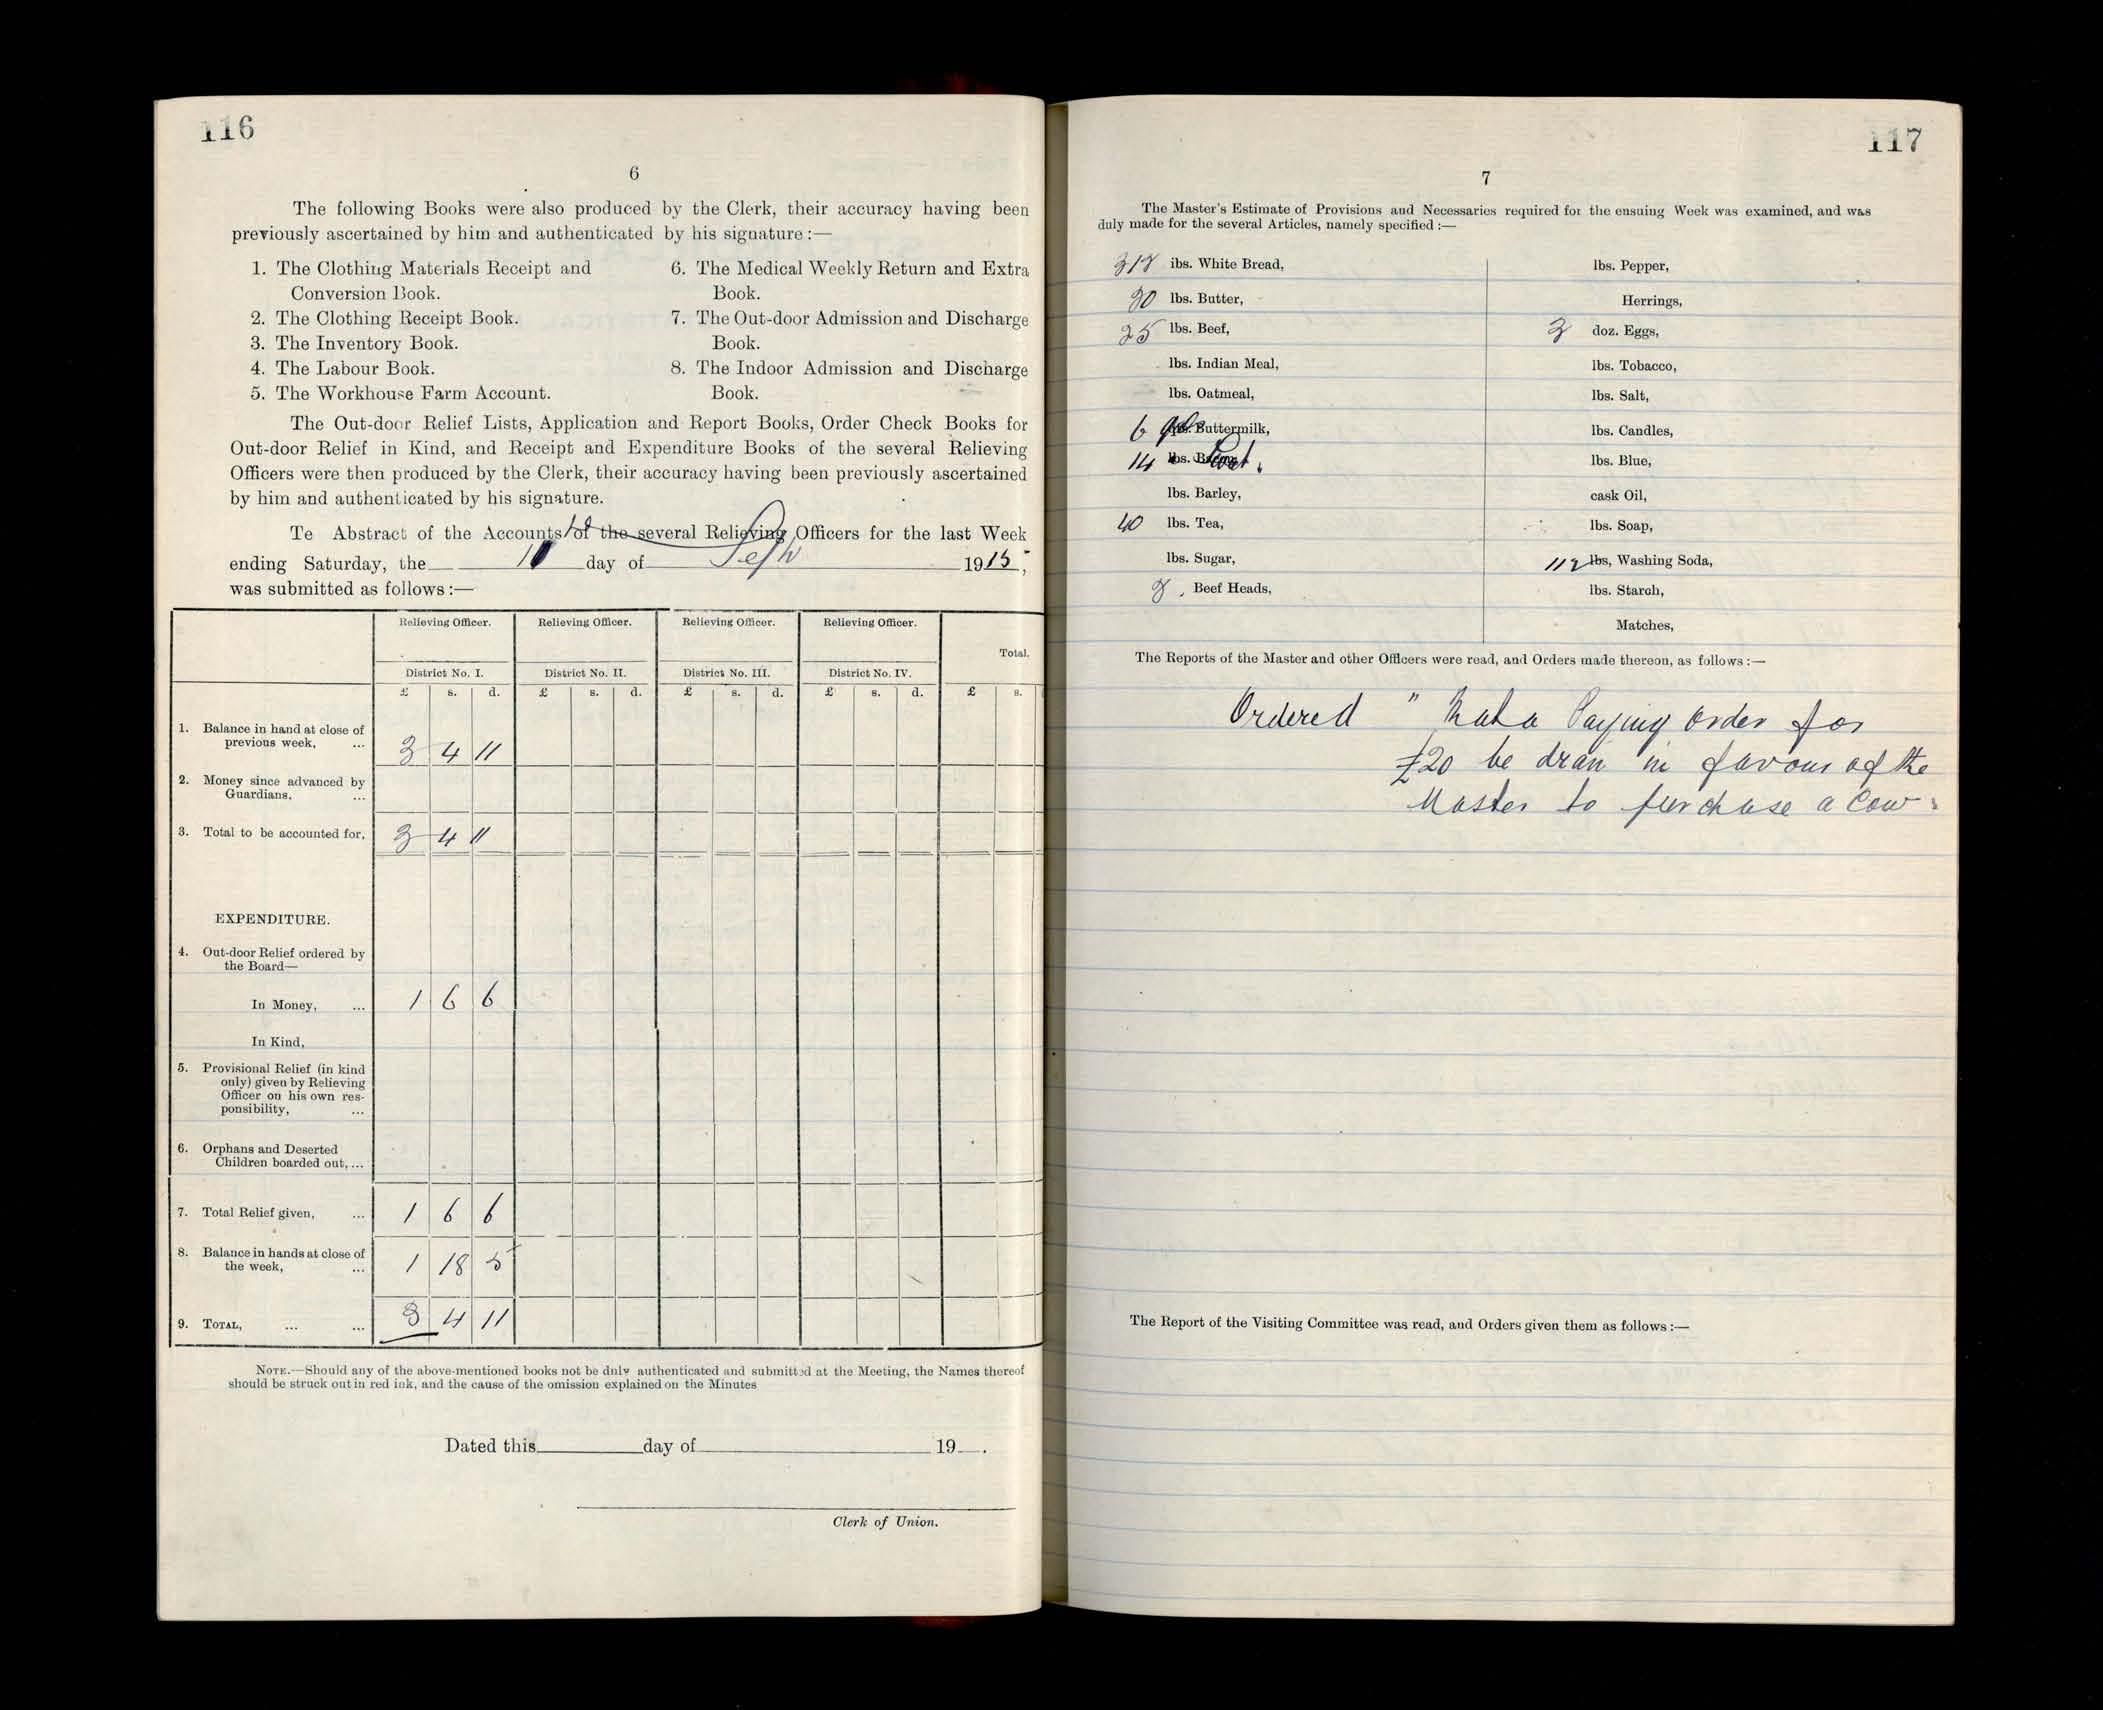 116
6
The following Books were also produced by the Clerk, their accuracy having been
previously ascertained by him and authenticated by his signature :—
1. The Clothing Materials Receipt and
Conversion Book.
2. The Clothing Receipt Book.
3. The Inventory Book.
4. The Labour Book.
5. The Workhouse Farm Account.
6. The Medical Weekly Return and Extra
Book.
7. The Out-door Admission and Discharge
Book.
8. The Indoor Admission and Discharge
Book.
The Out-door Relief Lists, Application and Report Books, Order Check Books for
Out-door Relief in Kind, and Receipt and Expenditure Books of the several Relieving
Officers were then produced by the Clerk, their accuracy having been previously ascertained
by him and authenticated by his signature.
Te Abstract of the Accounts of the several Relieving Officers for the last Week
ending Saturday, the day of Sept 1915,
was submitted as follows :—
Relieving Officer. Relieving Officer. Relieving Officer. Relieving Officer. Total.
District No. I. District No. II. District No. III. District No. IV.
£ s. d. £ s. d. £ s. d. £ s. d. £ s.
1. Balance in hand at close of
previous week, ... 3 4 11
2. Money since advanced by
Guardians, ...
3. Total to be accounted for, 3 4 11
EXPENDITURE.
4. Out-door Relief ordered by
the Board—
In Money, ... 1 6 6
In Kind,
5. Provisional Relief (in kind
only) given by Relieving
Officer on his own res-
ponsibility, ...
6. Orphans and Deserted
Children boarded out, ...
7. Total Relief given, ... 1 6 6
8. Balance in hands at close of
the week, ... 1 18 5
9. TOTAL, ... ... 3 4 11
NOTE.—Should any of the above-mentioned books not be duly authenticated and submitted at the Meeting, the Names thereof
should be struck out in red ink, and the cause of the omission explained on the Minutes
Dated this day of 19 .
Clerk of Union.
117
7
The Master's Estimate of Provisions and Necessaries required for the ensuing Week was examined, and was
duly made for the several Articles, namely specified :—
lbs. White Bread,
lbs. Butter,
25 lbs. Beef,
lbs. Indian Meal,
lbs. Oatmeal,
6 Buttermilk,
14 lbs.
lbs. Barley,
40 lbs. Tea,
lbs. Sugar,
Beef Heads,
lbs. Pepper,
Herrings,
3 doz. Eggs,
lbs. Tobacco,
lbs. Salt,
lbs. Candles,
lbs. Blue,
cask Oil,
lbs. Soap,
112 lbs, Washing Soda,
lbs. Starch,
Matches,
The Reports of the Master and other Officers were read, and Orders made thereon, as follows :—
Ordered " That a Paying Order for
£20 be dran in favour of the
Master to purchase a Cow.
The Report of the Visiting Committee was read, and Orders given them as follows :—